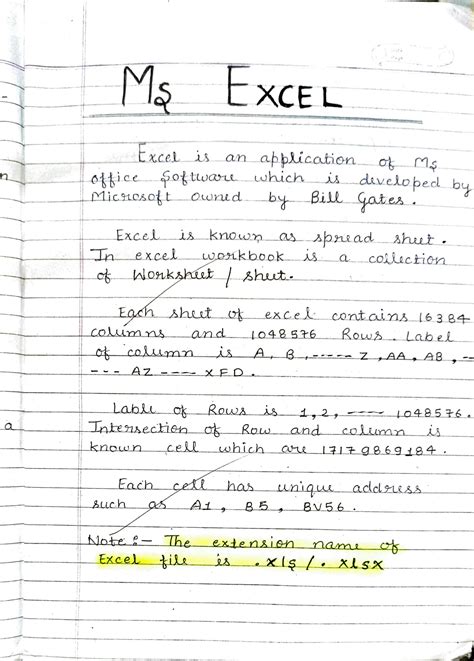 Ms EXCEL
Excel is an application of Ms
office Software which is developed by
Microsoft owned by Bill Gates.
Excel is known as spread sheet.
In excel workbook is a collection
of Worksheet / sheet.
Each sheet of excel contains 16384
columns and 1048576 Rows. Label
of column is A, B, ----- Z, AA, AB, --
--- AZ ---- XFD.
Lable of Rows is 1, 2, ---- 1048576.
Intersection of Row and column is
known cell which are 17179869184.
Each cell has unique address
such as A1, B5, BV56.
Note :- The extension name of
Excel file is .xls/. xlsx